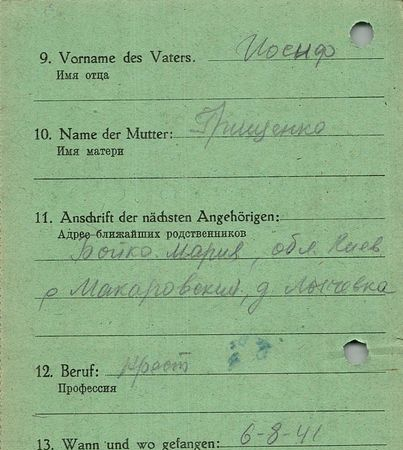 9. Vorname des Vaters. Иосиф
Имя отца
10. Name der Mutter: Грищенко
Имя матери
11. Anschrift der nächsten Angehörigen:
Адрес ближайших родственников
Бойко Мария, обл. Киев
р Макаровский, д
12. Beruf:
Профессия
13. Wann und wo gefangen: 6-8-41